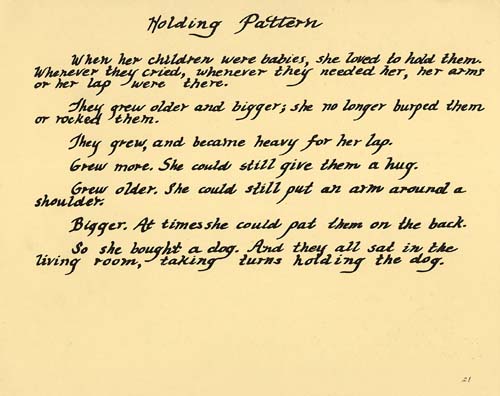 Holding Pattern
When her children were babies, she loved to hold them.
Whenever they cried, whenever they needed her, her arms
or her lap were there.
They grew older and bigger; she no longer burped them
or rocked them.
They grew, and became heavy for her lap.
Grew more. She could still give them a hug.
Grew older. She could still put an arm around a
shoulder.
Bigger. At times she could pat them on the back.
So she bought a dog. And they all sat in the
living room, taking turns holding the dog.
21